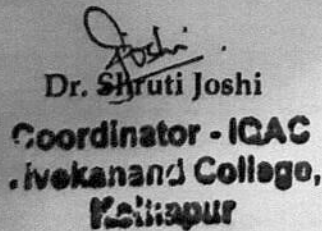 Joshi
Dr. Shruti Joshi
Coordinator - IQAC
.ivekanand College,
Kolhapur